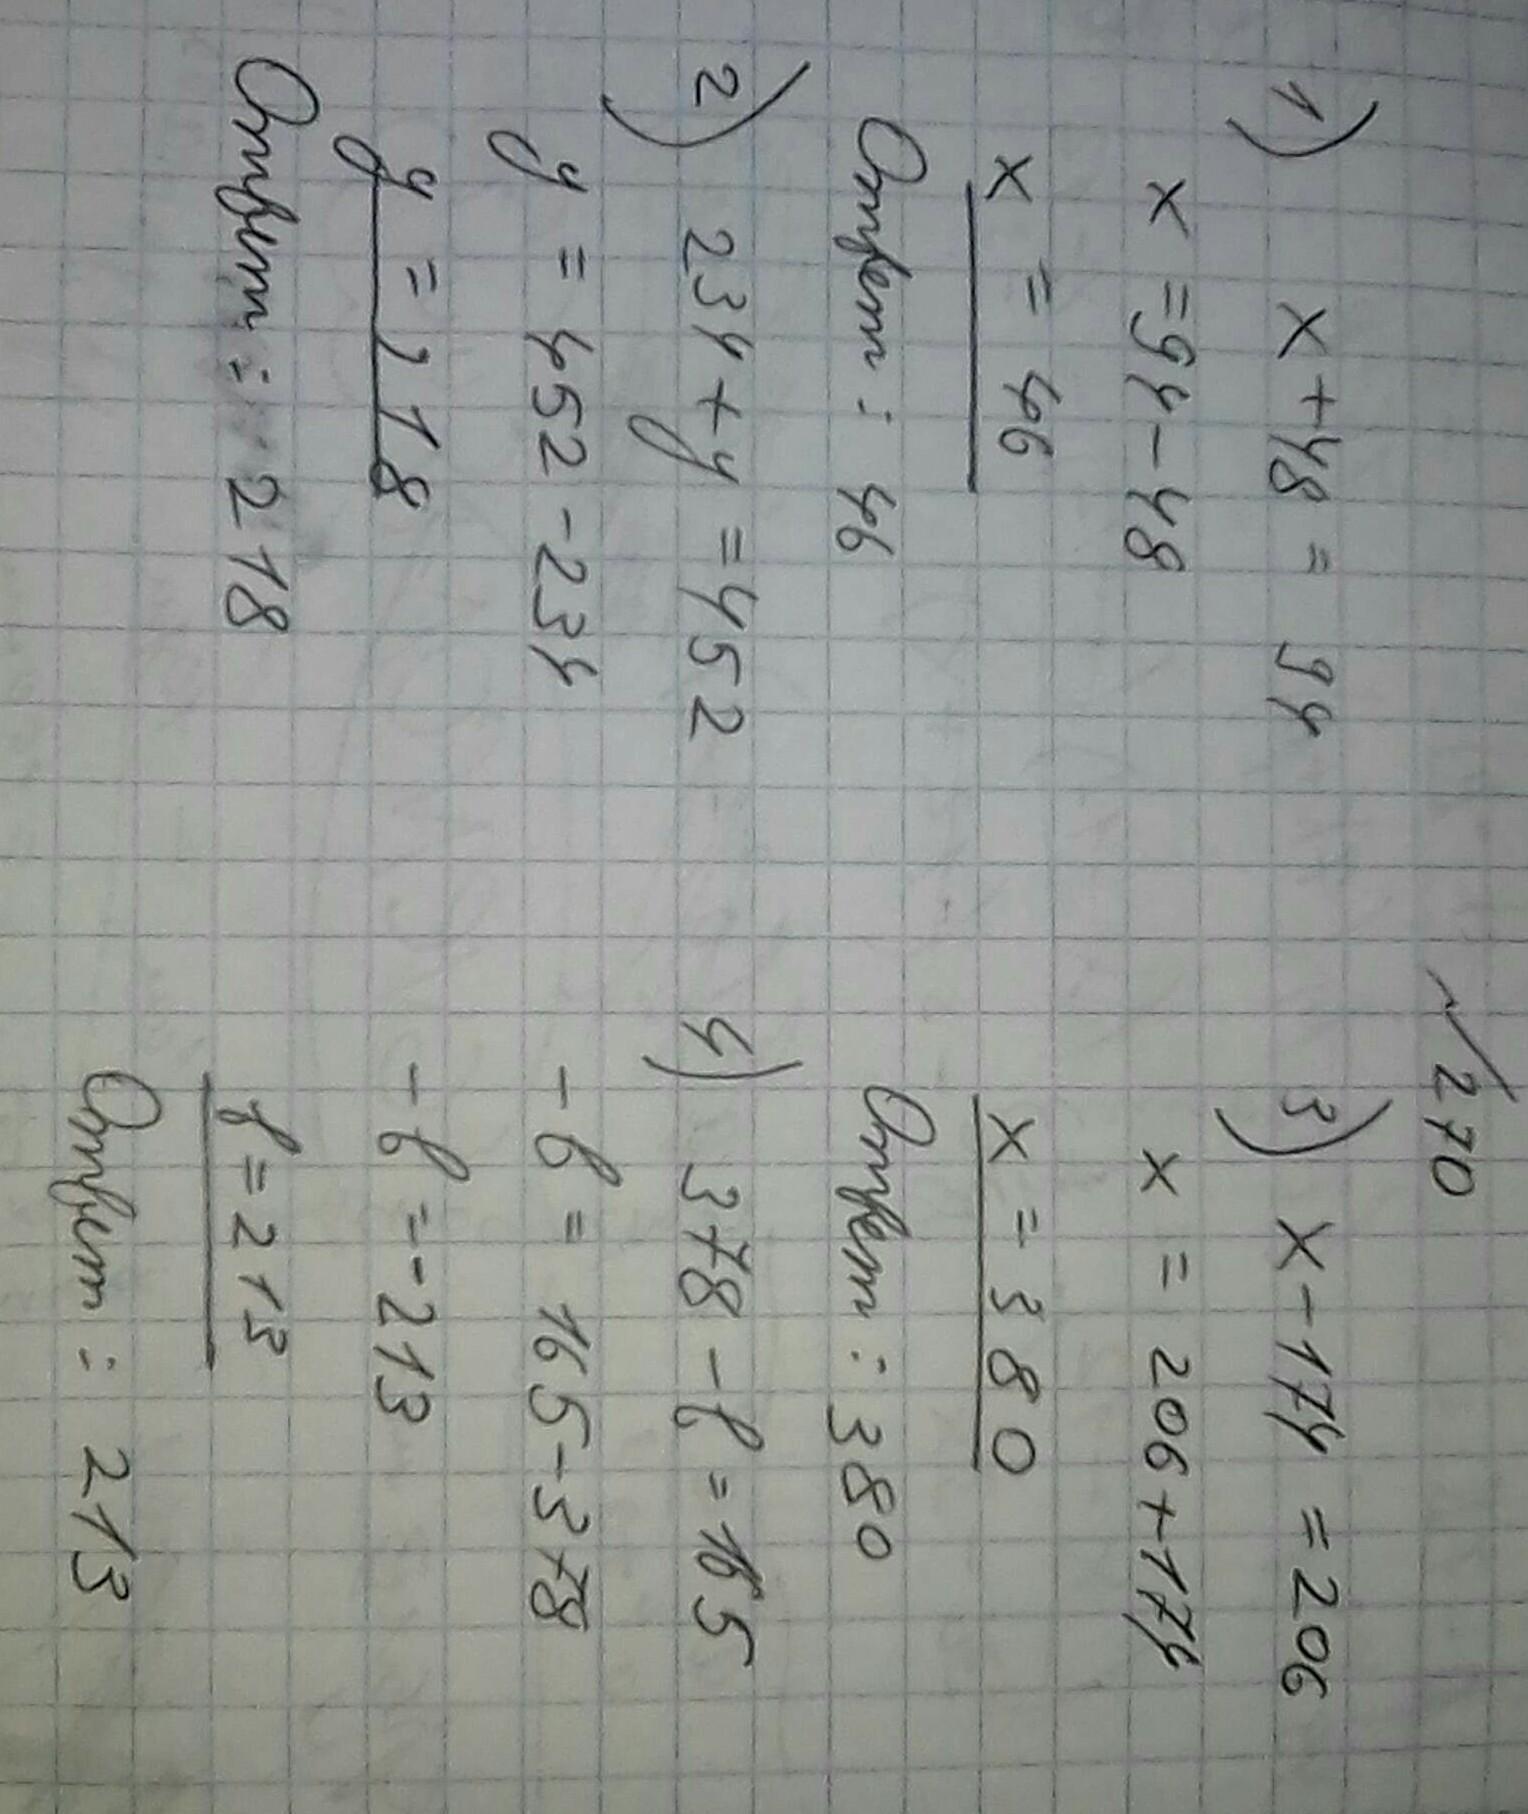 №270
1) x+48 = 94
x =94-48
x = 46
Ответ: 46
2) 234+y =452
y = 452-234
y = 218
Ответ: 218
3) x-174 =206
x = 206+174
x = 380
Ответ: 380
4) 378-в=165
-в = 165-378
-в =-213
в=213
Ответ: 213